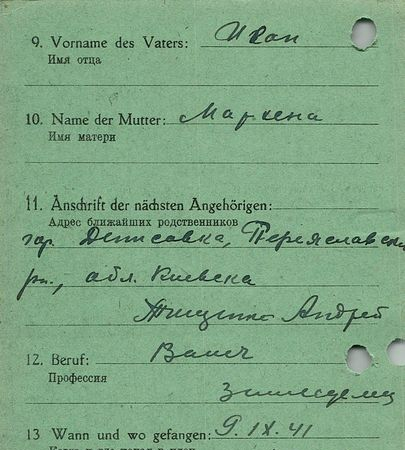 9. Vorname des Vaters: Иван
Имя отца
10. Name der Mutter: Марина
Имя матери
11. Anschrift der nächsten Angehörigen:
Адрес ближайших родственников
Денисовка, Переяславски
рн., обл. Киевска
Тищенко Андрей
12. Beruf:
Профессия
13 Wann und wo gefangen: 9. IX. 41